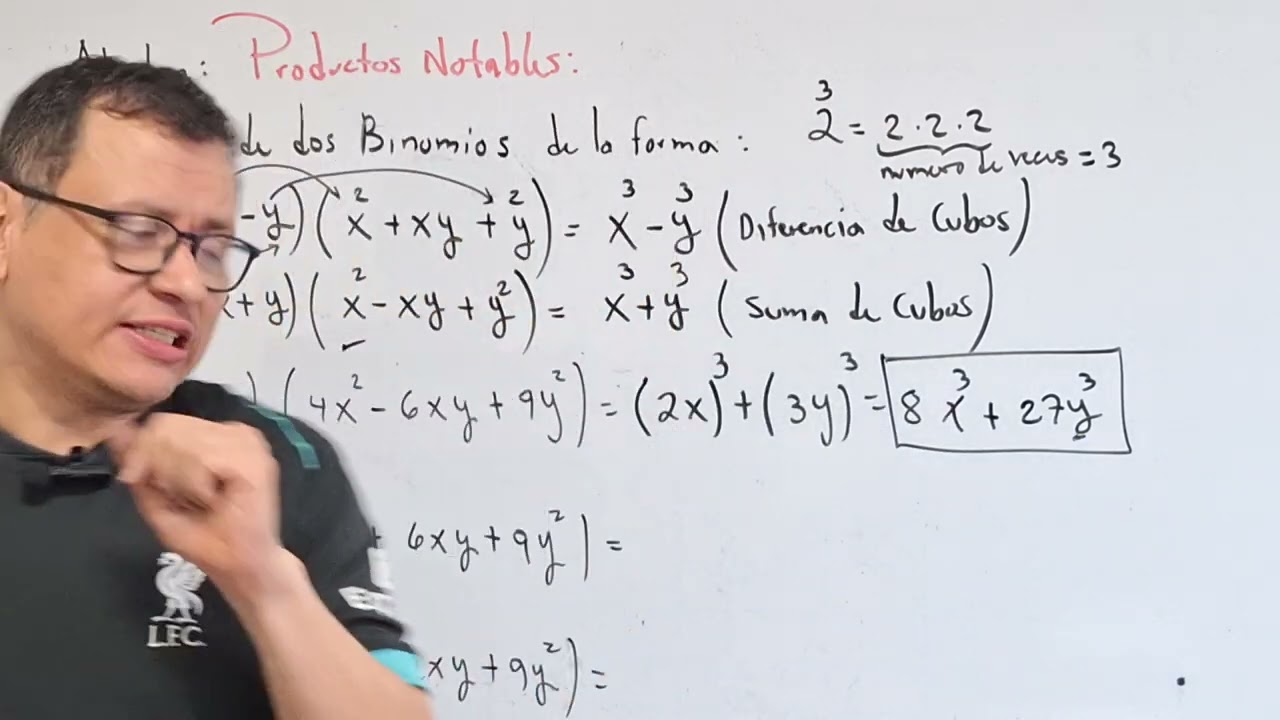 : Productos Notables:
de dos Binomios de la forma:
2³ = 2·2·2
numero de veces = 3
-y)(x² + xy + y²) = x³ - y³ (Diferencia de Cubos)
x + y)(x² - xy + y²) = x³ + y³ (Suma de Cubos)
)(4x² - 6xy + 9y²) = (2x)³ + (3y)³ = 8x³ + 27y³
+ 6xy + 9y²) =
xy + 9y²) =
L.F.C.